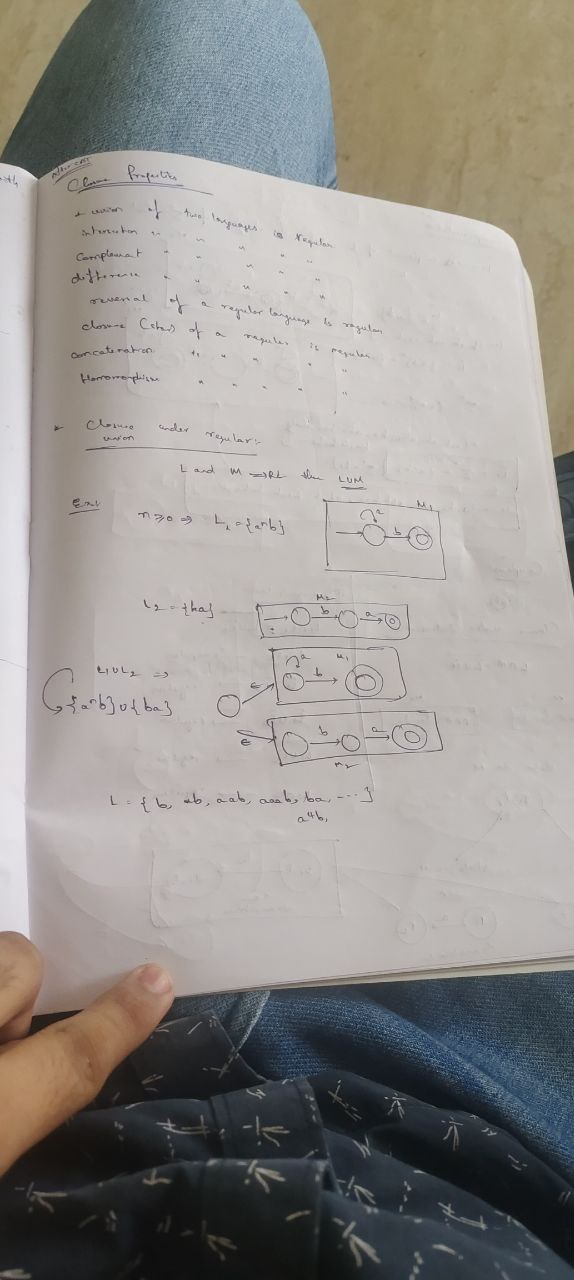 After CAT
Closure Properties
* union of two languages is regular
intersection " " " " "
Complement " " " " "
difference " " " " "
reversal of a regular language is regular
closure (star) of a regular is regular
concatenation " " " " "
Homomorphism " " " " "
* Closure under regular:-
union
L and M => RL the LUM
Ex:1
n≥0 => L₁ = {aⁿb}
M₁
a
b
L₂ = {ba}
M₂
b a
L₁UL₂ =>
{aⁿb} U {ba}
ε
a
b
M₁
ε
b a
M₂
L = { b, ab, aab, aaab, ba, ---- }
a⁴b,